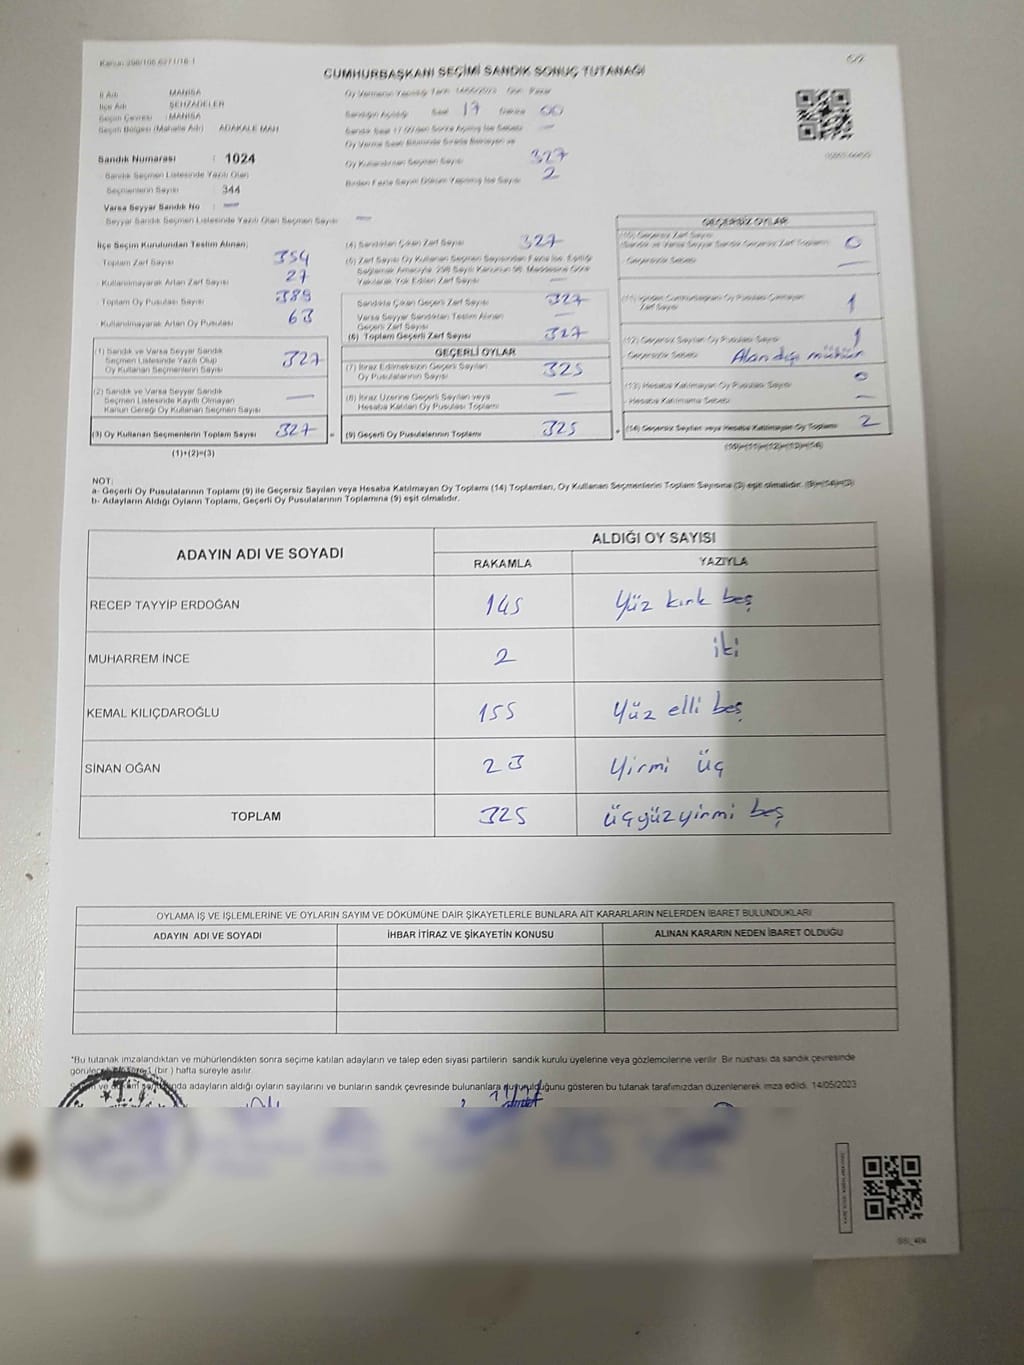 Kanun 298/105,6271/16-1
CUMHURBAŞKANI SEÇİMİ SANDIK SONUÇ TUTANAĞI
İl Adı : MANİSA
İlçe Adı : ŞEHZADELER
Seçim Çevresi : MANİSA
Seçim Bölgesi (Mahalle Adı) : ADAKALE MAH
Sandık Numarası : 1024
Sandık Seçmen Listesinde Yazılı Olan
Seçmenlerin Sayısı : 344
Varsa Seyyar Sandık No : —
Seyyar Sandık Seçmen Listesinde Yazılı Olan Seçmen Sayısı : —
Oy Vermenin Yapıldığı Tarih 14/05/2023 Gün Pazar
Sandığın Açıldığı Saat 17 Dakika 00
Sandık Saat 17.00'den Sonra Açılmış İse Sebebi —
Oy Kullanan Seçmen Sayısı 327
Birden Fazla Sayım Döküm Yapılmış İse Sayısı 2
İlçe Seçim Kurulundan Teslim Alınan;
Toplam Zarf Sayısı 354
Kullanılmayarak Artan Zarf Sayısı 27
Toplam Oy Pusulası Sayısı 389
Kullanılmayarak Artan Oy Pusulası 63
(1) Sandık ve Varsa Seyyar Sandık
Seçmen Listesinde Yazılı Olup
Oy Kullanan Seçmenlerin Sayısı 327
(2) Sandık ve Varsa Seyyar Sandık
Seçmen Listesinde Kayıtlı Olmayan
Kanun Gereği Oy Kullanan Seçmen Sayısı —
(3) Oy Kullanan Seçmenlerin Toplam Sayısı 327
(1)+(2)=(3)
(4) Sandıktan Çıkan Zarf Sayısı 327
(5) Zarf Sayısı Oy Kullanan Seçmen Sayısından Fazla İse, Eşitliği
Sağlamak Amacıyla 298 Sayılı Kanunun 98. Maddesine Göre
Yakılarak Yok Edilen Zarf Sayısı —
Sandıkta Çıkan Geçerli Zarf Sayısı 327
Varsa Seyyar Sandıktan Teslim Alınan
Geçerli Zarf Sayısı —
(6) Toplam Geçerli Zarf Sayısı 327
GEÇERLİ OYLAR
(7) İtiraz Edilmeksizin Geçerli Sayılan
Oy Pusulalarının Sayısı 325
(8) İtiraz Üzerine Geçerli Sayılan veya
Hesaba Katılan Oy Pusulası Toplamı —
= (9) Geçerli Oy Pusulalarının Toplamı 325
GEÇERSİZ OYLAR
(10) Geçersiz Zarf Sayısı
(Sandık ve Varsa Seyyar Sandık Geçersiz Zarf Toplamı) 0
- Geçersizlik Sebebi —
(11) İçinden Cumhurbaşkanı Oy Pusulası Çıkmayan
Zarf Sayısı 1
(12) Geçersiz Sayılan Oy Pusulası Sayısı 1
- Geçersizlik Sebebi Alan dışı mühür
(13) Hesaba Katılmayan Oy Pusulası Sayısı 0
- Hesaba Katılmama Sebebi —
+ (14) Geçersiz Sayılan veya Hesaba Katılmayan Oy Toplamı 2
(10)+(11)+(12)+(13)=(14)
NOT:
a- Geçerli Oy Pusulalarının Toplamı (9) ile Geçersiz Sayılan veya Hesaba Katılmayan Oy Toplamı (14) Toplamları, Oy Kullanan Seçmenlerin Toplam Sayısına (3) eşit olmalıdır. (9)+(14)=(3)
b- Adayların Aldığı Oyların Toplamı, Geçerli Oy Pusulalarının Toplamına (9) eşit olmalıdır.
ADAYIN ADI VE SOYADI
ALDIĞI OY SAYISI
RAKAMLA YAZIYLA
RECEP TAYYİP ERDOĞAN 145 Yüz kırk beş
MUHARREM İNCE 2 iki
KEMAL KILIÇDAROĞLU 155 Yüz elli beş
SİNAN OĞAN 23 Yirmi üç
TOPLAM 325 üçyüzyirmi beş
OYLAMA İŞ VE İŞLEMLERİNE VE OYLARIN SAYIM VE DÖKÜMÜNE DAİR ŞİKAYETLERLE BUNLARA AİT KARARLARIN NELERDEN İBARET BULUNDUKLARI
ADAYIN ADI VE SOYADI İHBAR İTİRAZ VE ŞİKAYETİN KONUSU ALINAN KARARIN NEDEN İBARET OLDUĞU
*Bu tutanak imzalandıktan ve mühürlendikten sonra seçime katılan adayların ve talep eden siyasi partilerin sandık kurulu üyelerine veya gözlemcilerine verilir. Bir nüshası da sandık çevresinde
(bir ) hafta süreyle asılır.
adayların aldığı oyların sayılarını ve bunların sandık çevresinde bulunanlara duyurulduğunu gösteren bu tutanak tarafımızdan düzenlenerek imza edildi. 14/05/2023